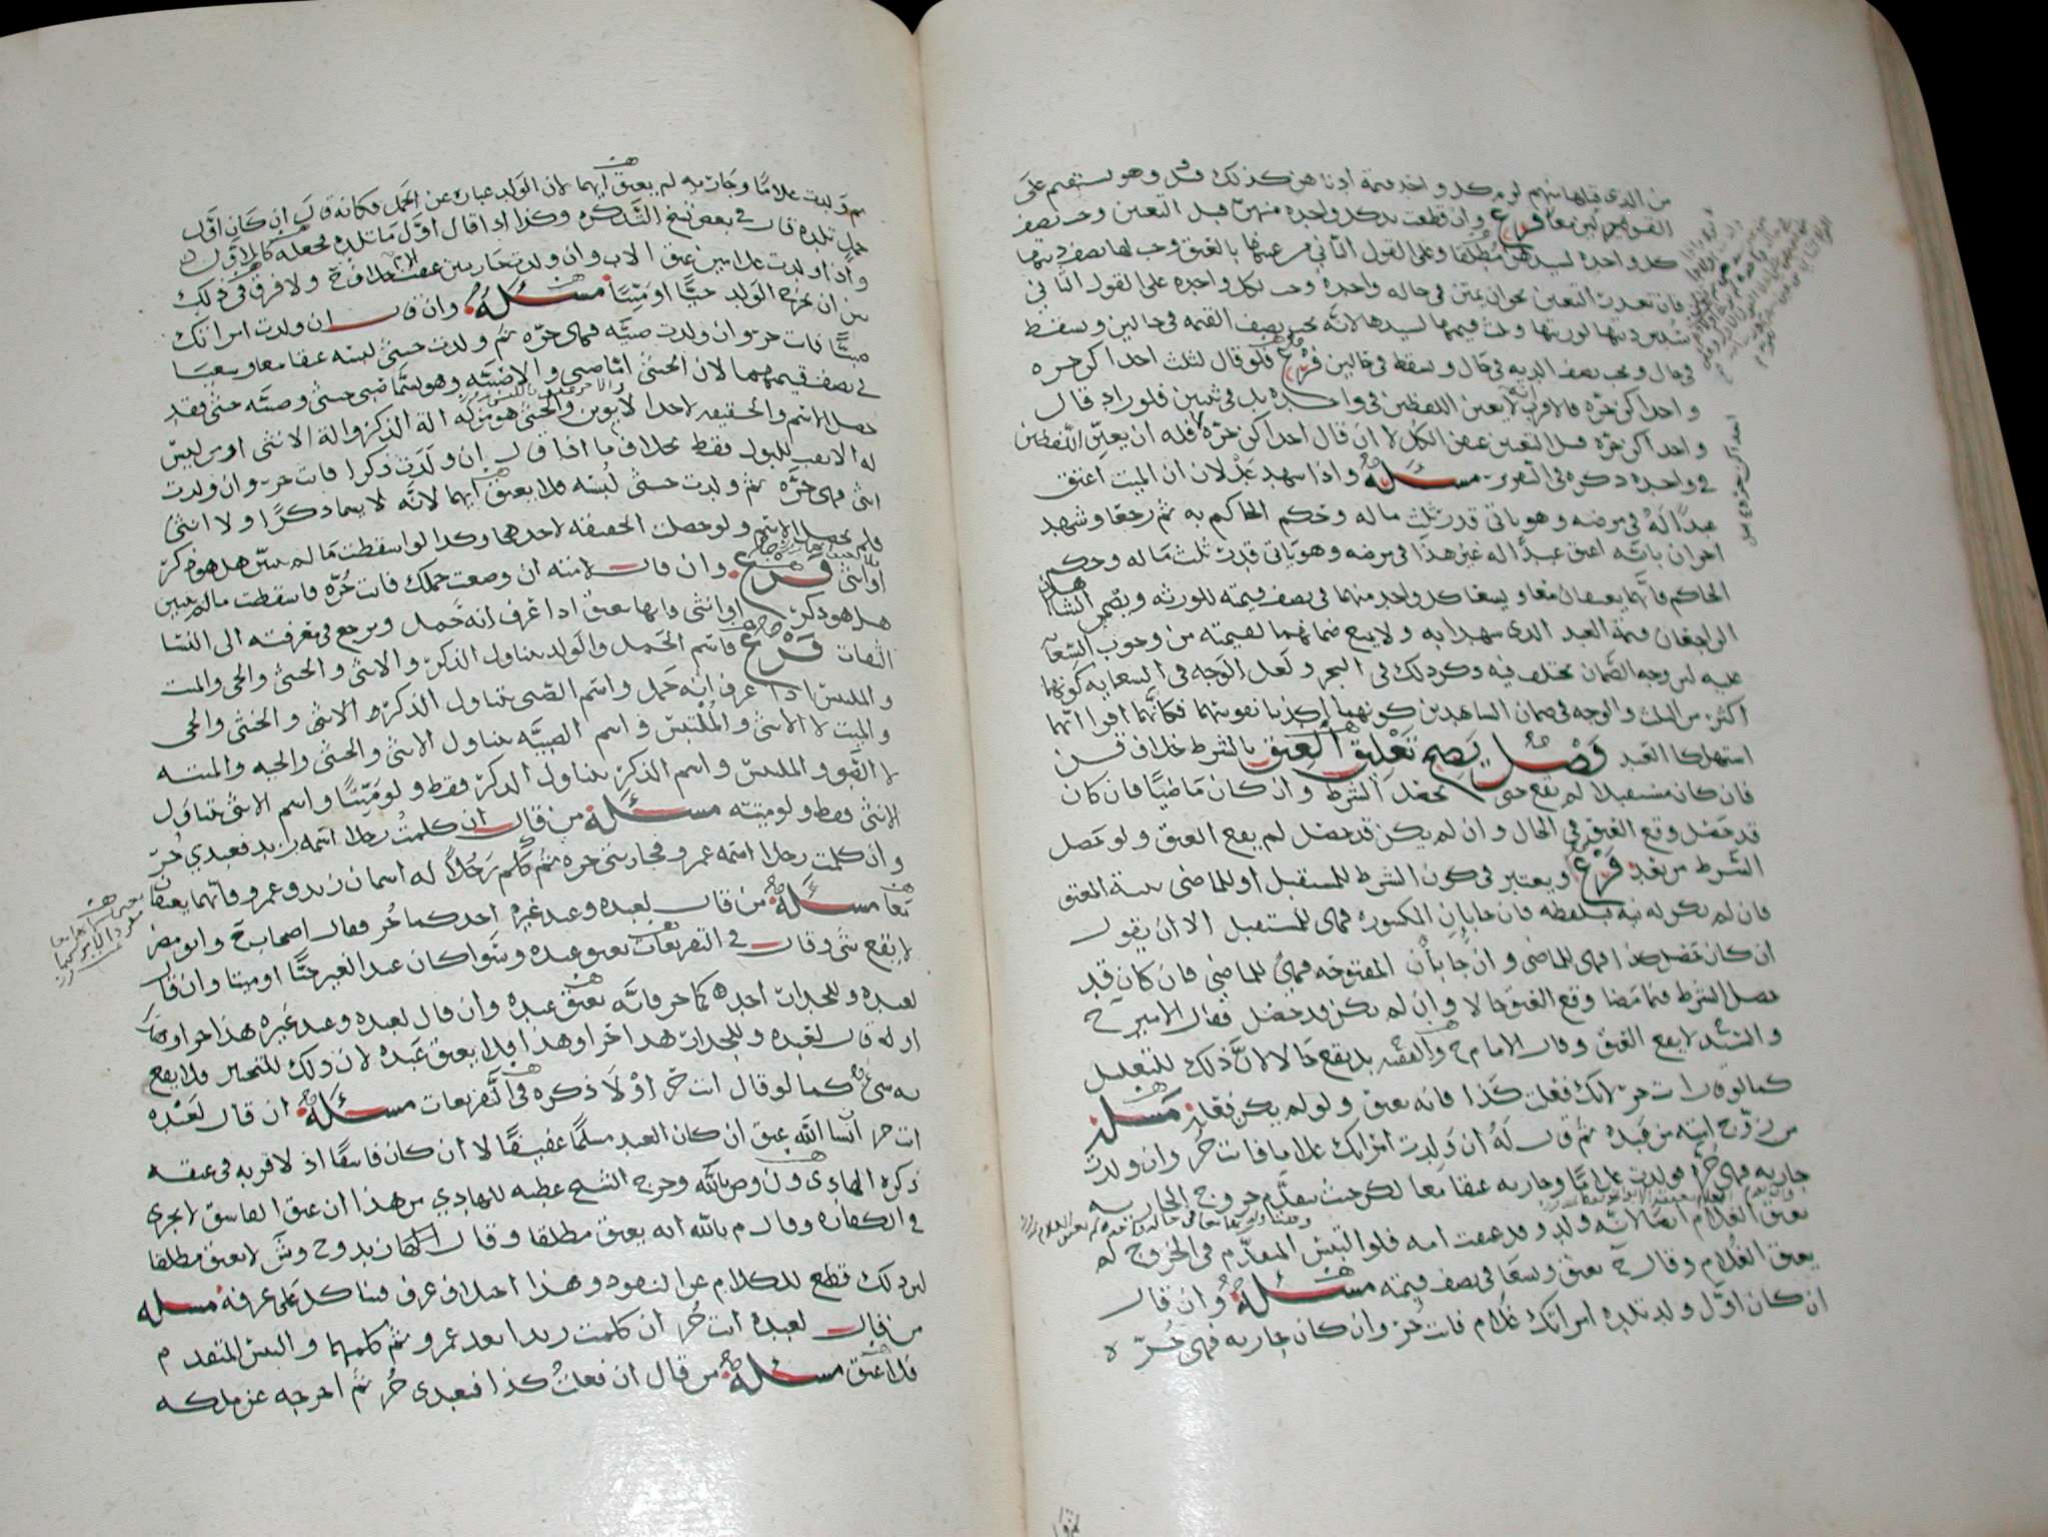 من الذي قبلها منهم لزم كل واحد قيمة
القولين معا فرع وان قطعت يد كل واحدة منهن قبل التعيين وجب نصف
كل واحدة لسيدهن مطلقا وعلى القول الثاني من عينها بالعتق وجب لها نصف ديتها
فان تعذرت التعيين نحو ان يمتن في حالة واحدة وجب لكل واحدة على القول الثاني
سدس ديتها لورثتها وثلث قيمتها لسيدها لانه يجب نصف القيمة في حالين وسقط
في حال ويجب نصف الدية في حال ويسقط في حالين فرع فلو قال لثلث احداكن حرة
واحداكن حرة فالاقرب انه لا يعين اللفظين في واحدة بل في ثنتين فلو زاد قال
واحداكن حرة قبل التعيين عتق الكل لا ان قال احداكن حرة فله ان يعين اللفظين
في واحدة ذكره في التقرير مسئلة واذا شهد عدلان ان الميت اعتق
عبدا له في مرضه وهو ياتي قدر ثلث ماله وحكم الحاكم به ثم رجعا وشهد
اخران بانه اعتق عبدا له غير هذا في مرضه وهو ياتي قدر ثلث ماله وحكم
الحاكم فانهما يعتقان معا ويسعا كل واحد منهما في نصف قيمته للورثة ويضمن الشاهدان
الراجعان قيمة العبد الذي شهدا به ولا يمنع ضمانهما لقيمته من وجوب السعاية
عليه لان وجه الضمان مختلف فيه وكذلك في البحر ولعل الوجه في السعاية كونهما
اكثر من الثلث والوجه في ضمان الشاهدين كونهما اكذبا نفوسهما فكانهما اقرا انهما
استهلكا العبد فصل يصح تعليق العتق بالشرط خلاف قرن
فان كان مستقبلا لم يقع حتى يحصل الشرط وان كان ماضيا فان كان
قد حصل وقع العتق في الحال وان لم يكن قد حصل لم يقع العتق ولو حصل
الشرط من بعد فرع ويعتبر في كون الشرط للمستقبل او للماضي بنية المعتق
فان لم يكن له نية فبلفظه فان جا بان المكسورة فهي للمستقبل الا ان يقول
ان كان حصل كذا فهي للماضي وان جا بان المفتوحة فهي للماضي فان كان قد
حصل الشرط فيما مضا وقع العتق حالا وان لم يكن قد حصل فقال الامير ح
والسيد لا يقع العتق وقال الامام ح والفقيه بل يقع حالا لان ذلك للتعليل
كما لو قال انت حر لانك فعلت كذا فانه يعتق ولو لم يكن فعل مسئلة
من زوج امته من عبده ثم قال له ان ولدت امراتك غلاما فانت حر وان ولدت
جارية فهي حرة فولدت غلاما وجارية عتقا معا لكن حيث تقدم خروج الجارية
يعتق الغلام ايضا لانه ولد وقد عتقت امه فلو التبس المتقدم في الخروج لم
يعتق الغلام وقال ح يعتق ويسعا في نصف قيمته مسئلة وان قال
ان كان اول ولد تلده امراتك غلام فانت حر وان كان جارية فهي حرة
ثم ولدت غلاما وجارية لم يعتق ايهما لان الولد عبارة عن الحمل فكانه قال ان كان اول
حمل تلده قال في بعض نسخ التذكرة وكذا اذا قال اول ما تلده فجعله كالاول
واذا ولدت غلامين عتق الاب وان ولدت جاريتين عتقت الام ولا فرق في ذلك
بين ان يخرج الولد حيا او ميتا مسئلة وان قال ان ولدت امراتك
صبيا فانت حر وان ولدت صبية فهي حرة ثم ولدت خنثى لبسة عتقا معا وسعيا
في نصف قيمتهما لان الخنثى اما صبي والا صبية وهو يسما صبي خنثى وصبية خنثى فقد
حصل الاسم والحقيقة لاحد الابوين والخنثى هو من له الة الذكر والة الانثى او من ليس
له الا ثقب للبول فقط بخلاف ما اذا قال ان ولدت ذكرا فانت حر وان ولدت
انثى فهي حرة ثم ولدت خنثى لبسة فلا يعتق ايهما لانه لا يسما ذكرا ولا انثى
فلم يحصل الاسم ولو حصلت الحقيقة لاحدهما وكذا لو اسقطت ما لم يتبين هل هو ذكر
او انثى فرع وان قال لامته ان وضعت حملك فانت حرة فاسقطت مالم يتبين
هل هو ذكر او انثى فانها تعتق اذا عرف انه حمل ويرجع في معرفته الى النسا
الثقات فرع فاسم الحمل والولد يتناول الذكر والانثى والخنثى والحي والميت
والملتبس اذا عرف انه حمل واسم الصبي يتناول الذكر لا الانثى والخنثى والحي
والميت لا الانثى والملتبس واسم الصبية يتناول الانثى والخنثى والحية والميتة
لا الصبي والملتبس واسم الذكر يتناول الذكر فقط ولو ميتا واسم الانثى يتناول
الانثى فقط ولو ميتة مسئلة من قال ان كلمت رجلا اسمه زيد فعبدي حر
وان كلمت رجلا اسمه عمرو فجاريتي حرة ثم كلم رجلا له اسمان زيد وعمرو فانهما يعتقان
معا مسئلة من قال لعبده وعبد غيره احدكما حر فقال اصحاب ح وابو مضر
لا يقع شي وقال في التفريعات يعتق عبده وسوا كان عبد الغير حيا او ميتا وان قال
لعبده وللجدار احدكما حر فانه يعتق عبده وان قال لعبده وعبد غيره هذا حر او هذا
او قال لعبده وللجدار هذا حر او هذا فلا يعتق عبده لان ذلك للتخيير فلا يقع
به شي كما لو قال انت حر او لا ذكره في التفريعات مسئلة ان قال لعبده
انت حر ان شا الله عتق ان كان العبد مسلما عفيفا لا ان كان فاسقا اذ لا قربة في عتقه
ذكره الهادي ون وص بالله وخرج الشيخ عطية للهادي من هذا ان عتق الفاسق لا يجزي
في الكفارة وقال م بالله انه يعتق مطلقا وقال زيد وح وش لا يعتق مطلقا
لان ذلك قطع للكلام عن النفوذ وهذا اختلاف عرف فبنا كل على عرفه مسئلة
من قال لعبده انت حر ان كلمت زيدا بعد عمرو ثم كلمهما والتبس المتقدم
فلا عتق مسئلة من قال ان فعلت كذا فعبدي حر ثم اخرجه عن ملكه